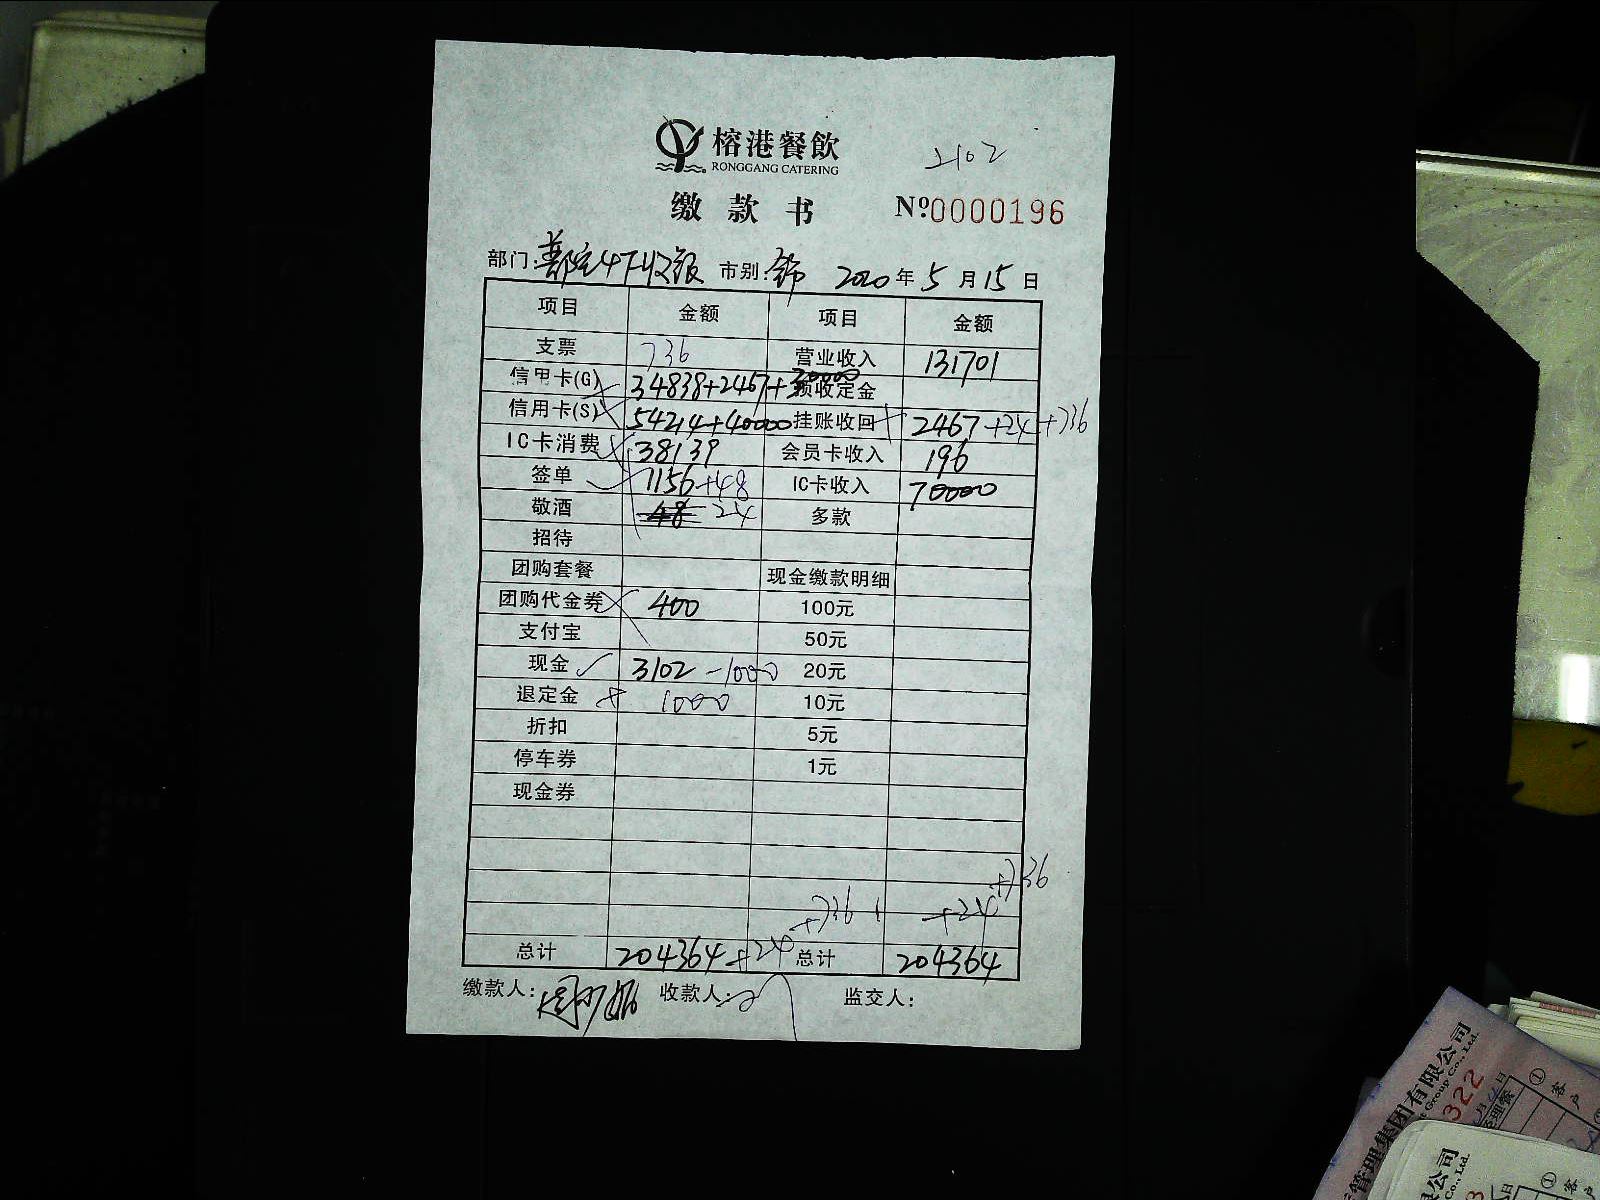 榕港餐飲
RONGGANG CATERING
2102
缴款书 Nº0000196
部门: 4下收银 市别: 2020年5月15日
项目 金额 项目 金额
支票 736 营业收入 131701
信用卡(G) 34838+2467+30000 预收定金
信用卡(S) 54214+40000 挂账收回 2467+24+736
IC卡消费 38139 会员卡收入 196
签单 1156+48 IC卡收入 70000
敬酒 48 24 多款
招待
团购套餐 现金缴款明细
团购代金券 400 100元
支付宝 50元
现金 3102-1000 20元
退定金 1000 10元
折扣 5元
停车券 1元
现金券
+736
+736 +24
总计 204364+24 总计 204364
缴款人: 收款人: 监交人:
管理集团有限公司
t Group Co., Ltd.
322
① 客户
限公司
Co., Ltd.
① 客户